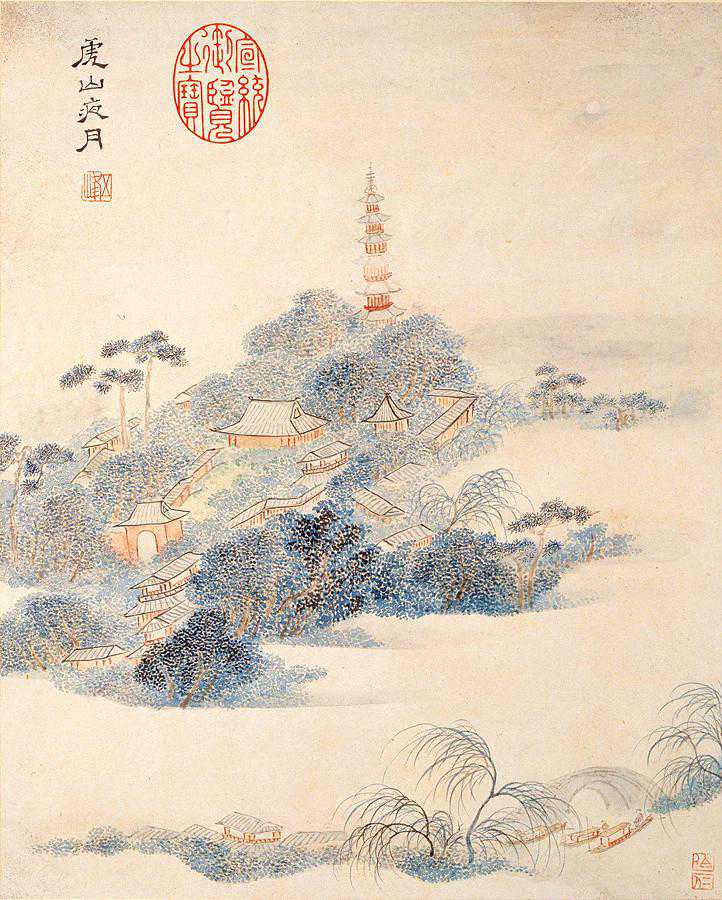 虎山夜月
宣統
御覽
之寶